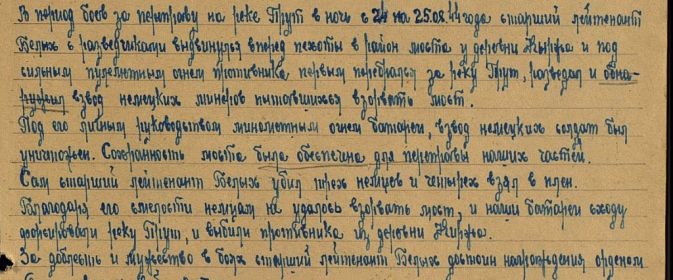 В период боев за переправу на реке Прут в ночь с 24 на 25.08.44 года старший лейтенант
Белых с разведчиками выдвинулся вперед пехоты в район моста у деревни и под
сильным пулеметным огнем противника первым перебрался за реку Прут, разведал и обна-
ружил взвод немецких минеров пытавшихся взорвать мост.
Под его личным руководством минометным огнем батареи, взвод немецких солдат был
уничтожен. Сохранность моста была обеспечена для переправы наших частей.
Сам старший лейтенант Белых убил трех немцев и четырех взял в плен.
Благодаря его смелости немцам не удалось взорвать мост, и наши батареи сходу
форсировали реку Прут, и выбили противника из деревни
За доблесть и мужество в боях старший лейтенант Белых достоин награждения орденом